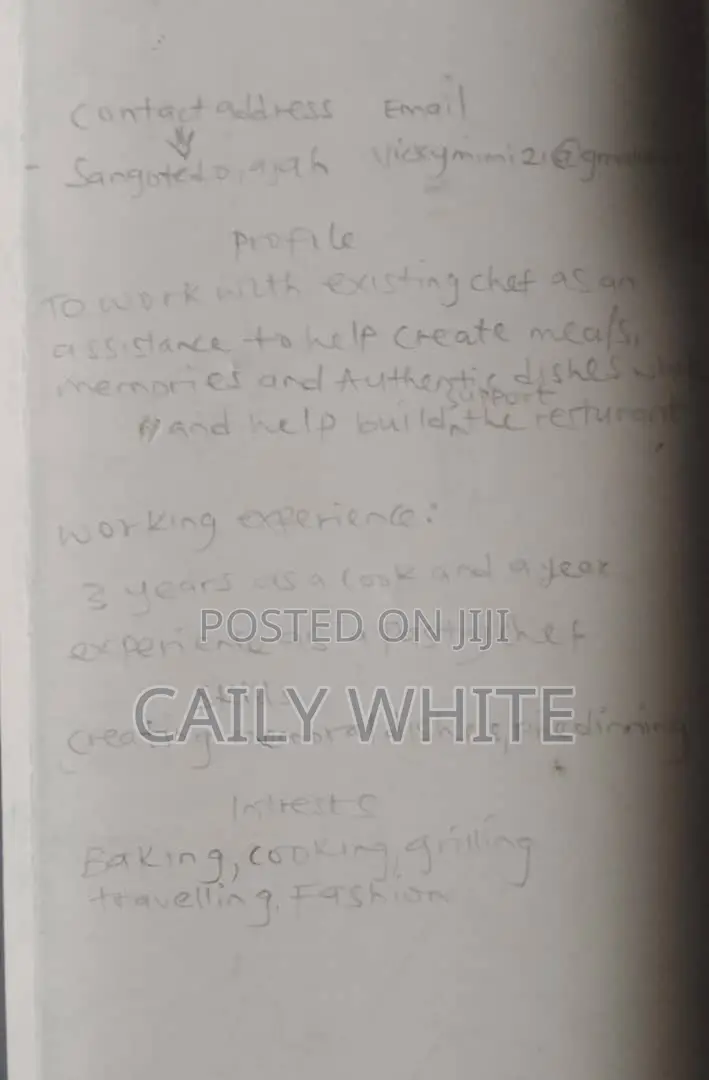 Contact address Email
- Sangotedo, ajah Vickymimi21@gm
Profile
To work with existing chef as an
assistance to help create meals,
memories and Authentic dishes
support
and help build the resturant
working experience:
3 years as a cook and a year
experience as a pastry chef
POSTED ON JIJI
Skills
CAILY WHITE
Creating
Intrests
Baking, cooking, grilling
travelling, Fashion